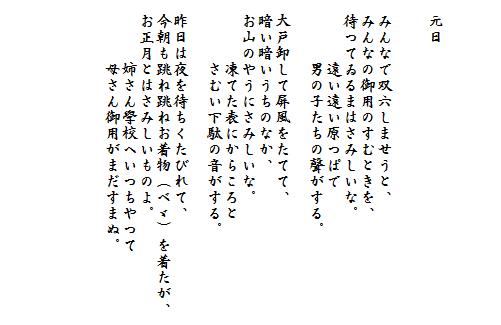 元日
みんなで双六しませうと、
みんなの御用のすむときを、
待つてゐるまはさみしいな。
遠い遠い原つぱで
男の子たちの聲がする。
大戸卸して屏風をたてて、
暗い暗いうちのなか、
お山のやうにさみしいな。
凍てた表にからころと
さむい下駄の音がする。
昨日は夜を待ちくたびれて、
今朝も跳ね跳ねお着物（べゞ）を着たが、
お正月とはさみしいものよ。
姉さん學校へいつちやつて
母さん御用がまだすまぬ。